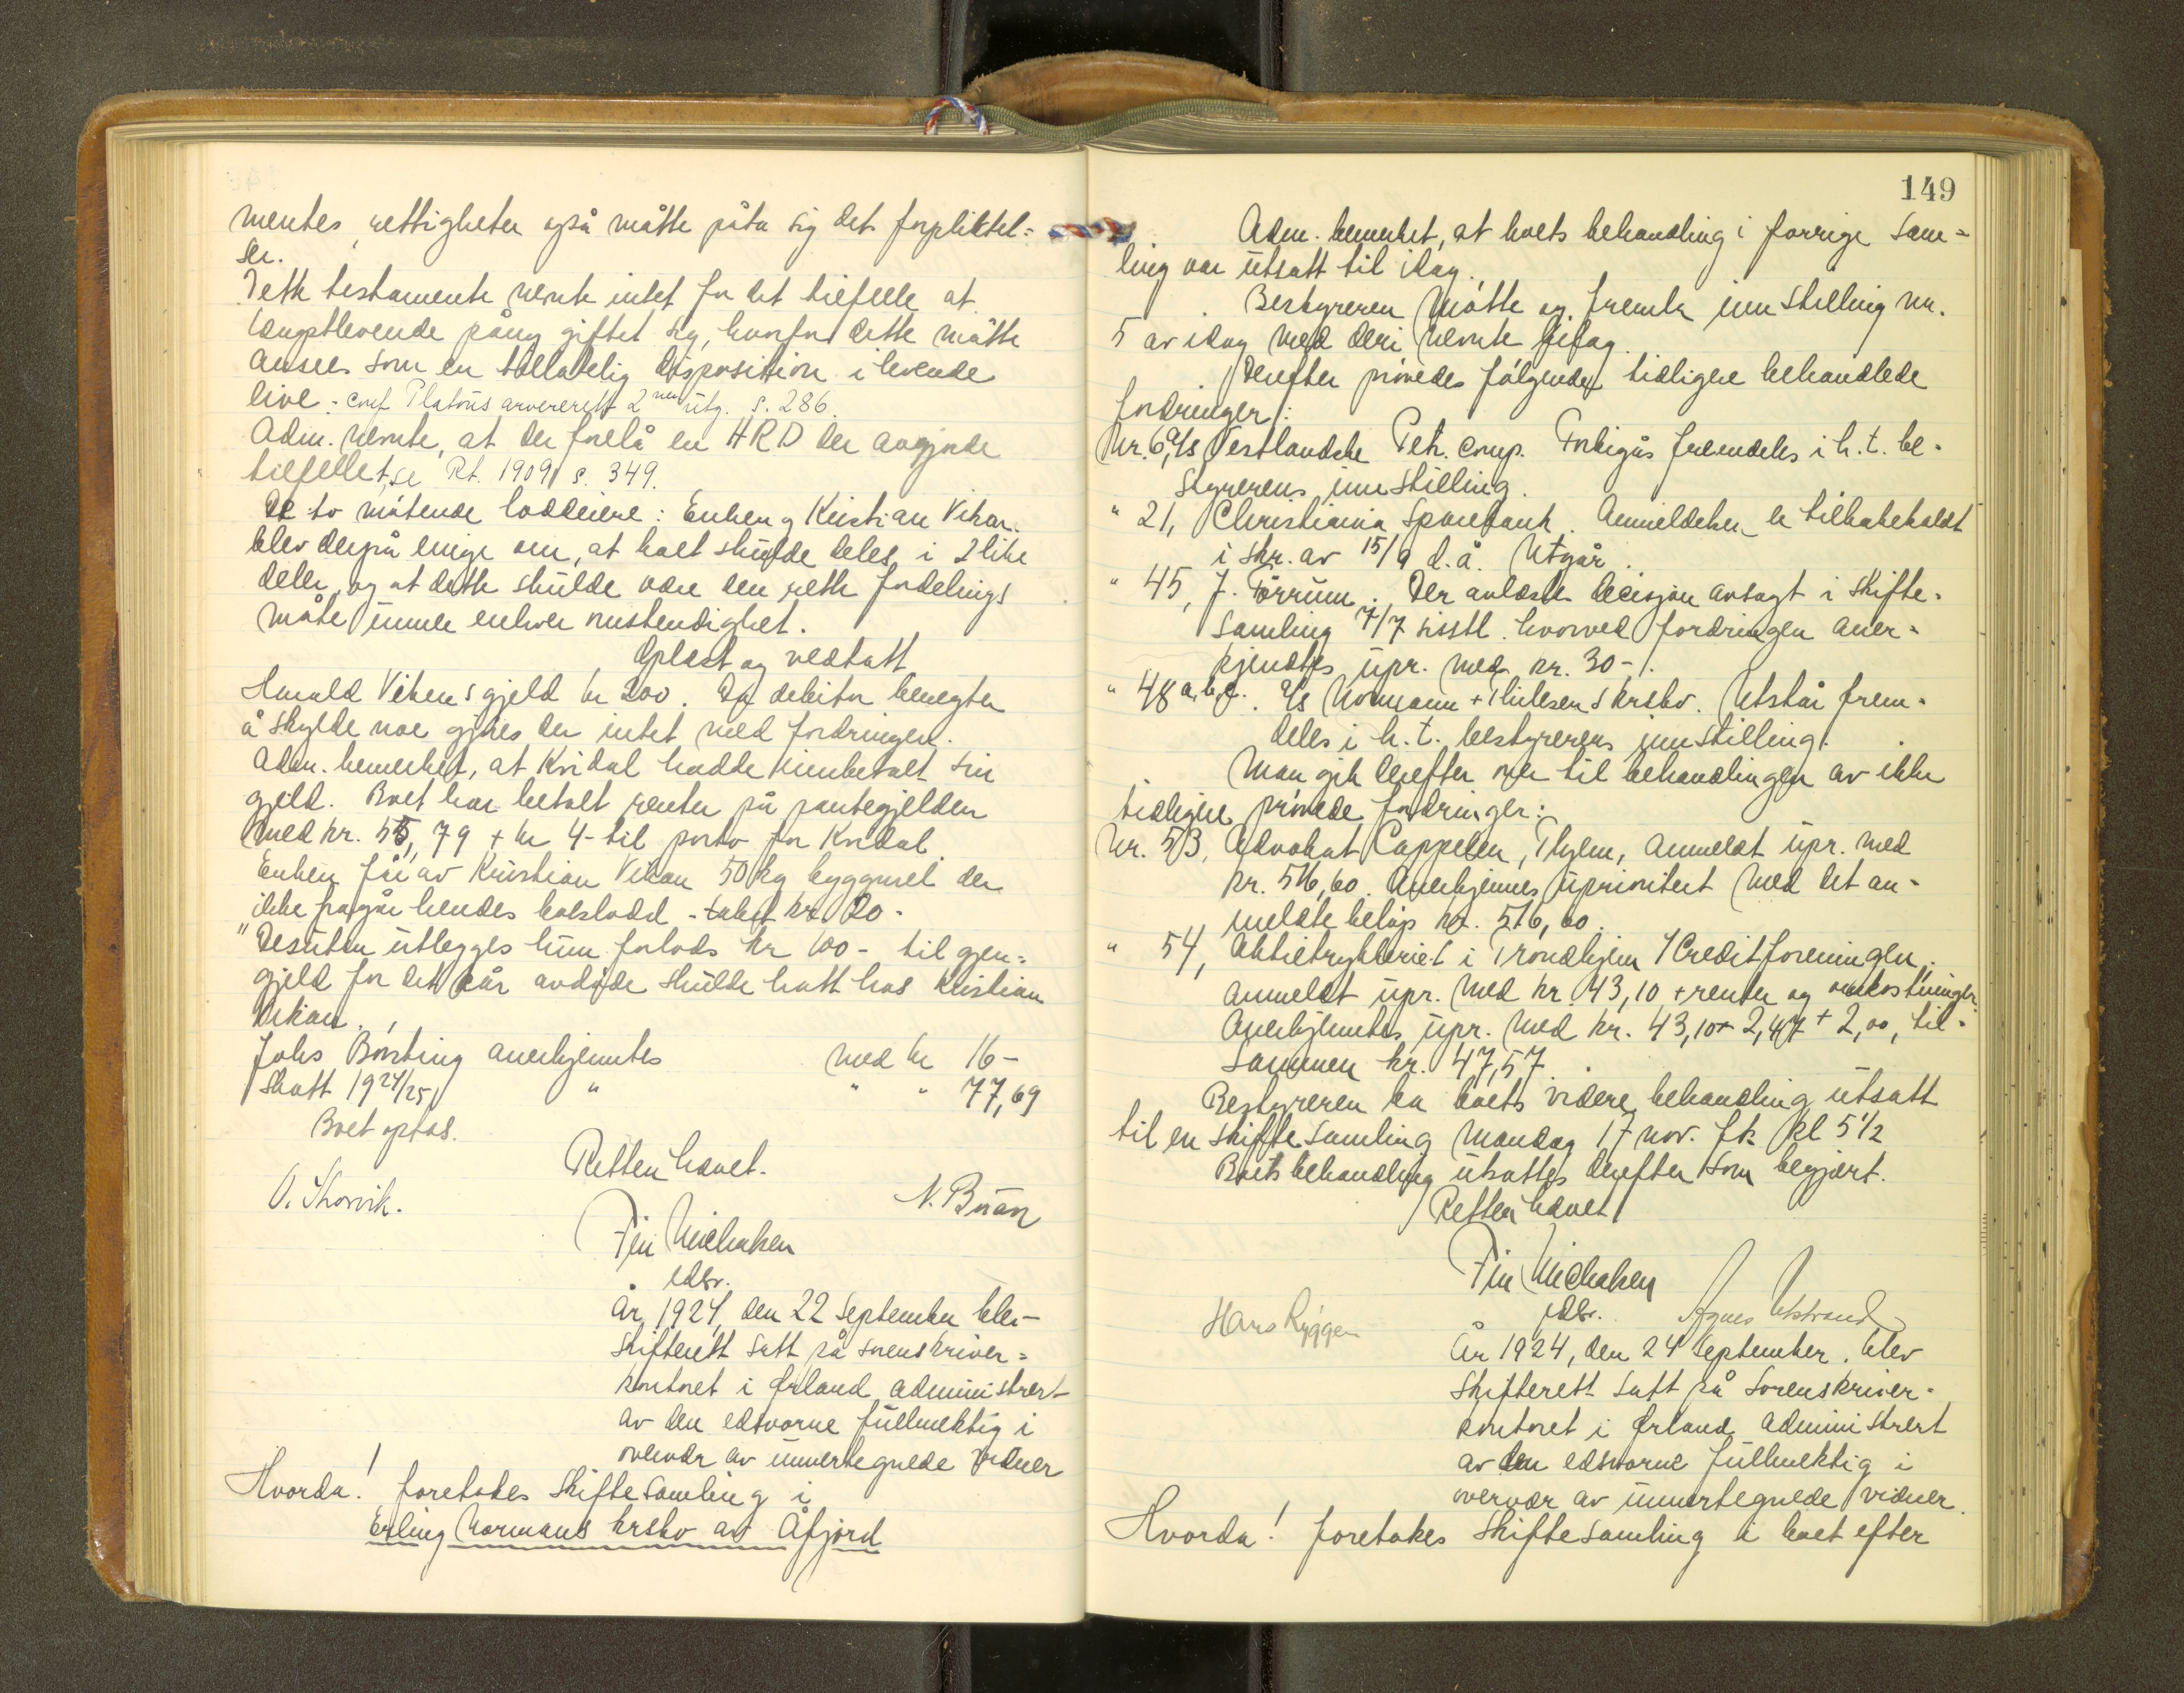 mentes rettigheter også måtte påta sig det forpliktel=
ser.
Dette testamente nevnte intet for det tilfelle at
længstlevende påny giftet sig, hvorfor dette måtte
ansees som en tilladelig disposition i levende
live. conf Platous arverett 2nen utg. s. 286.
Adm. nevnte, at der forelå en HRD der avgjorde
tilfellet, se Rt. 1909 s. 349.
De to møtende loddeiere: Enken og Kristian Vikan
blev derpå enige om, at boet skulde deles i 2 like
deler og at dette skulde være den rette fordelings
måte under enhver omstendighet.
Oplest og vedtatt
Harald Vikens gjeld kr 200. Da debitor benegter
å skylde noe gjøres der intet med fordringen.
Adm. bemerket, at Kvidal hadde innbetalt sin
gjeld. Boet har betalt renter på pantegjelden
med kr. 55,79 + kr 4- til porto for Kvidal.
Enken får av Kristian Vikan 50 kg byggmel der
ikke fragår hendes boslodd - takst kr. 20-
"Desuten utlegges hun forlods kr 100- til gjen=
gjeld for det kår avdøde skulde hatt hos Kristian
Vikan.
Johs Børsting anerkjentes med kr 16-
Skatt 1924/25 " " " 77,69
Boet optas.
Retten hævet.
O. Skorvik.
N. Buan
Fin Michaelsen
edsv.
År 1924, den 22 September blev
skifterett satt på sorenskriver=
kontoret i Ørland administrert
av den edsvorne fullmektig i
overvær av unnertegnede vidner
Hvorda! foretokes skiftesamling i
Erling Normans krsbo av Åfjord
149
Adm. bemerket, at boets behandling i forrige sam=
ling var utsatt til idag.
Bestyreren møtte og fremla innstilling nr.
5 av idag med deri nevnte bilag.
Derefter prøvedes følgende tidligere behandlede
fordringer:
Nr. 6, A/s Vestlandske Petr. Comp. Forbigås fremdeles i h. t. be-
styrerens innstilling.
" 21, Christiania Sparebank. Anmeldelsen er tilbakekaldt
i skr. av 15/9 d.å. Utgår.
" 45, J. Førrum. Der avlæstes decisjon avsagt i skifte-
samling 7/7 sisstl. hvorved fordringen aner-
kjendtes upr. med kr. 30-.
" 48 a, b, c. A/s Normann + Thilesens krsbo. Utstår frem-
deles i h. t. bestyrerens innstilling.
Man gik derefter over til behandlingen av ikke
tidligere prøvede fordringer:
Nr. 53, Advokat Cappelen, Thjem, anmeldt upr. med
kr. 516,60. Anerkjennes uprioritert med det an-
meldte beløp kr. 516,60.
" 54, Aktietrykkeriet i Trondhjem v/Creditforeningen.
anmeldt upr. med kr. 43,10 + renter og omkostninger.
Anerkjentes upr. med kr. 43,10 + 2,47 + 2,00, til-
sammen kr. 47,57.
Bestyreren ba boets videre behandling utsatt
til en skiftesamling mandag 17 nov. fk kl 5 1/2
Boets behandling utsattes derefter som begjært.
Retten hævet
Fin Michaelsen
edsv.
Hans Rygge
Agnes Utstrand
År 1924, den 24 September. blev
skifterett satt på sorenskriver-
kontoret i Ørland administrert
av den edsvorne fullmektig i
overvær av unnertegnede vidner.
Hvorda! foretokes skiftesamling i boet efter